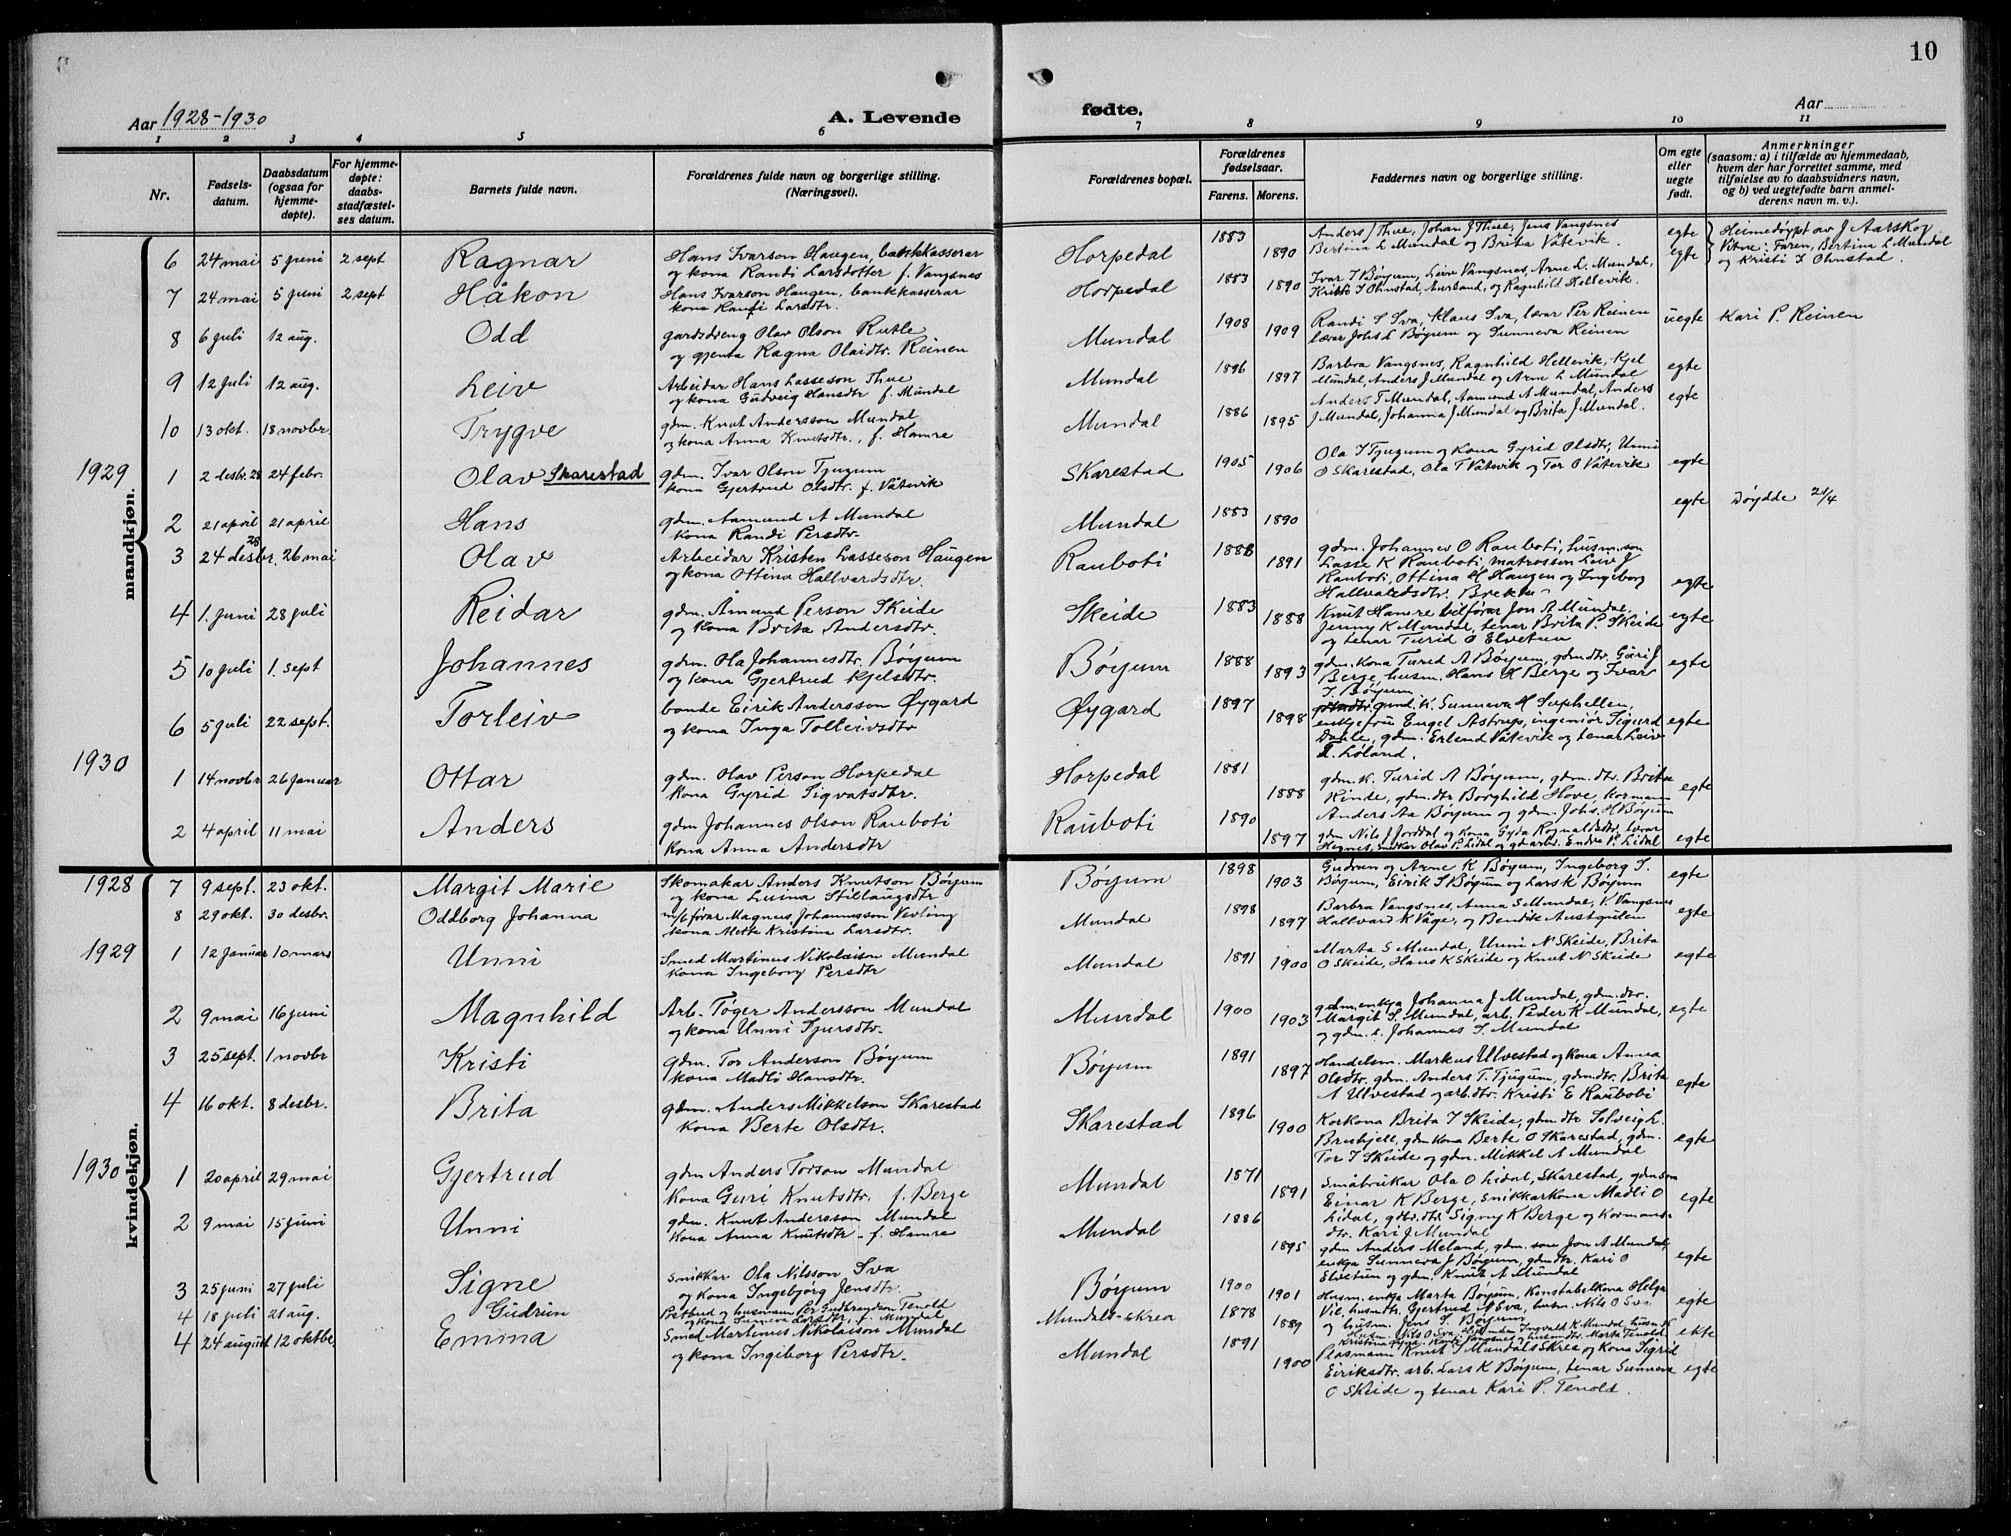 10
Aar 1928-1930
A. Levende
fødte.
Aar
1 2 3 4 5 6 7 8 9 10 11
Nr.
Fødsels-
datum.
Daabsdatum
(ogsaa for
hjemme-
døpte).
For hjemme-
døpte:
daabs-
stadfæstel-
ses datum.
Barnets fulde navn.
Forældrenes fulde navn og borgerlige stilling.
(Næringsvei).
Forældrenes bopæl.
Forældrenes
fødselsaar.
Farens. Morens.
Faddernes navn og borgerlige stilling.
Om egte
eller
uegte
født.
Anmerkninger
(saasom: a) i tilfælde av hjemmedaab,
hvem der har forrettet samme, med
tilføielse av to daabsvidners navn,
og b) ved uegtefødte barn anmel-
derens navn m. v.).
mandkjøn.
6 24 mai 5 juni 2 sept Ragnar
Hans Ivarson Haugen, bankkasserar
og kona Randi Larsdotter f. Vangsnes
Horpedal 1883 1890
Anders J Thue, Johan J Thue, Jens Vangsnes
Bertina L Mundal og Brita Våtevik.
egte
egte
Heimedøypt av J Aarskog
Vitne: Faren, Bertina L Mundal
og Kristi I Ohnstad.
7 24 mai 5 juni 2 sept Håkon
Hans Ivarson Haugen, bankkasserar
kona Randi Larsdtr.
Horpedal 1883 1890
Ivar I Bøyum, Leiv Vangsnes, Arne L. Mundal,
Kristi I Ohnstad, Aurland, og Ragnhild Hellevik.
8 6 juli 12 aug. Odd
gardsdreng Olav Olson Rutle
og gjenta Ragna Olaidtr. Reinen
Mundal 1908 1909
Randi S Sva, Klaus Sva, lærar Per Reinen
lærar Johs L Bøyum og Sunneva Reinen
uegte Kari P. Reinen
9 12 juli 12 aug. Leiv
Arbeidar Hans Lasseson Thue
og kona Gudveig Hansdtr f. Mundal
Mundal 1896 1897
Barbra Vangsnes, Ragnhild Hellevik, Kjel
Mundal, Anders J Mundal og Arne L Mundal
egte
10 13 okt. 18 novbr. Trygve
gdm. Knut Andersson Mundal
og kona Anna Knutsdtr., f. Hamre
Mundal 1886 1895
Anders T Mundal, Aamund A Mundal, Anders
J Mundal, Johanna J Mundal og Brita J Mundal.
egte
1929
1 2 desbr. 28 24 febr. Olav Skarestad
gdm. Ivar Olson Tjugum
kona Gjertrud Olsdtr. f. Våtevik
Skarestad 1905 1906
Ola I Tjugum og kona Gyrid Olsdtr, Unni
O Skarestad, Ola T Våtevik og Tor O Våtevik
egte
2 21 april 21 april Hans
gdm. Aamund A Mundal
kona Randi Persdtr.
Mundal 1883 1890
egte Døydde 21/4
3 24 desbr. 28 26 mai Olav
Arbeidar Kristen Lasseson Haugen
og kona Ottina Hallvardsdtr.
Rauboti 1888 1891
gdm. Johannes O Rauboti, husm.son
Lasse K Rauboti, matrossen Leiv J
Rauboti, Ottina H Haugen og Ingeborg
Hallvardsdtr. Brekke
egte
4 1. juni 28 juli Reidar
gdm. Åmund Person Skeide
og kona Brita Andersdtr.
Skeide 1883 1888
Knut Hamre bilførar Jon A Mundal,
Jenny K Mundal, tenar Brita P. Skeide
og tenar Turid O Elvetun
egte
5 10 juli 1. sept Johannes
gdm. Ola Johannesdtr. Bøyum
og kona Gjertrud Kjelsdtr.
Bøyum 1888 1893
gdm. kona Turid A Bøyum, gdm.dtr. Guri J
Berge, husm. Hans K Berge og Ivar
I. Bøyum
egte
6 5 juli 22 sept. Torleiv
bonde Eirik Andersson Øygard
og kona Inga Tolleivsdtr
Øygard 1897 1898
gmd.K. Sunneva H Suphellen,
enkjefru Engel Astrup, ingeniør Sigurd
Dahle, gdm. Erlend Våtevik og tenar Leiv
T. Løland.
egte
1930
1 14 novbr 26 januar Ottar
gdm. Olav Person Horpedal
kona Gyrid Sigvatsdtr.
Horpedal 1881 1888
gdm.k. Turid A Bøyum, gdm.dtr. Brita
Kinde, gdm.dtr Borghild Hove, Kormann
Anders Aa Bøyum og gdm. Johs. H Bøyum
egte
2 4 april 11 mai Anders
gdm Johannes Olson Rauboti
kona Anna Andersdtr
Rauboti 1890 1897
gdm Nils J Jorddal og kona Gyda Rognaldsdtr, lærar
Hegnes, snikar Olav P. Lidal og gd.arb. Endre P. Lidal
egte
kvindekjøn.
1928
7 9 sept. 23 okt. Margit Marie
Skomakar Anders Knutson Bøyum
og kona Luina Stillaugsdtr
Bøyum 1898 1903
Gudrun og Arne K Bøyum, Ingeborg S.
Bøyum, Eirik S Bøyum og Lars K Bøyum
egte
8 29 okt. 30 desbr. Oddborg Johanna
m/b førar Magnus Johannesson Vevling
kona Mette Kristina Larsdtr.
Mundal 1898 1897
Barbra Vangsnes, Anna S Mundal, K. Vangsnes
Hallvard K Våge, og Bendik Austgulen
egte
1929
1 12 januar 10 mars Unni
Smed Martinus Nikolaison Mundal
kona Ingeborg Persdtr
Mundal 1891 1900
Marta S Mundal, Unni N Skeide, Brita
O Skeide, Hans K Skeide og Knut N Skeide
egte
2 9 mai 16 juni Magnhild
Arb. Tøger Andersson Mundal
og kona Unni Sjursdtr.
Mundal 1900 1903
gdm.enkja Johanna J Mundal, gdm.dtr.
Margit S. Mundal, arb. Peder K Mundal,
og gdm.s. Johannes S. Mundal
egte
3 25 sept. 1 novbr Kristi
gdm. Tor Anderson Bøyum
kona Madli Hansdtr.
Bøyum 1891 1897
Handelsm. Markus Ulvestad og kona Anna
Olsdtr. gdm. Anders T. Tjugum, gdm.dtr. Brita
A Ulvestad og arb.dtr. Kristi E Rauboti
egte
4 16 okt. 8 desbr. Brita
gdm. Anders Mikkelson Skarestad
kona Berte Olsdtr.
Skarestad 1896 1900
Korkona Brita I Skeide, gdm.dtr Solveig L.
Bruhjell, gdm.kona Berte O Skarestad, gdm.
Tor I Skeide og gdm. Mikkel A Mundal
egte
1930
1 20 april 29 mai Gjertrud
gdm Anders Torson Mundal
Kona Guri Knutsdtr. f. Berge
Mundal 1871 1891
Småbrukar Ola O Lidal, Skarestad, gdmson
Einar K Berge, snikkarkona Madli O
Lidal, gdbr.dtr. Signy K Berge og Kormans-
dtr. Kari J Mundal
egte
2 9 mai 15 juni Unni
gdm. Knut Andersson Mundal
Kona Anna Knutsdtr. f. Hamre
Mundal 1886 1895
gdm Anders Meland, gdm.son Jon A Mundal,
enkja Sunneva J Bøyum, gdm.dtr. Kari O
Elvetun og gdm. Knut A Mundal
egte
3 25 juni 27 juli Signe
Snikkar Ola Nilsson Sva
og kona Ingebjørg Jensdtr.
Bøyum 1900 1901
Husm.enkja Marta Bøyum, Konstabelkona Helga
Vil. husmdtr. Gjertrud N Sva, husm. Nils O Sva
og husm. Jens S. Bøyum
egte
4 18 juli 21 aug. Gudrun
Postbud og husmann Per Gudbrandson Tenold
og kona Sunneva Larsdtr, f. Mundal
Mundals-skrea 1878 1889
ekte
4 24 august 12 oktbr. Emma
Smed Martinus Nikolaison Mundal
og kona Ingeborg Persdtr.
Mundal 1891 1900
Plasmann Knut I Mundals Skrea og kona Sigrid
Eiriksdtr, arb. Lars K Bøyum, tenar Sunneva
O Skeide og tenar Kari P. Tenold.
egte